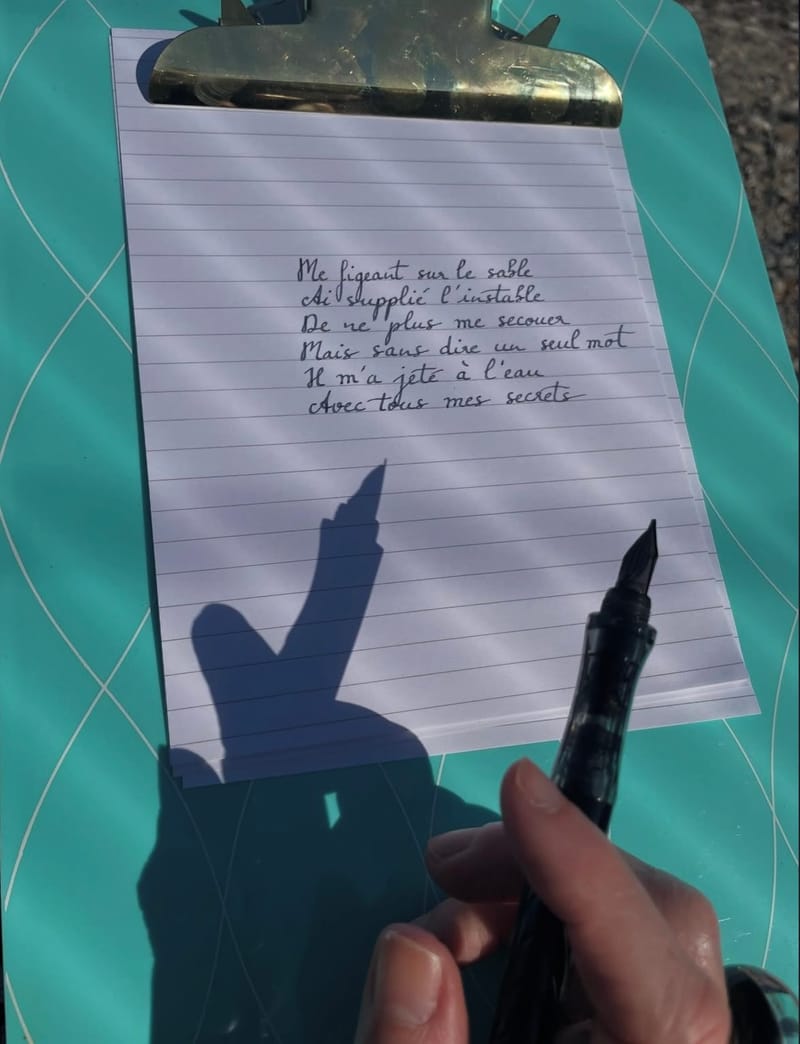 Me figeant sur le sable
Ai supplié l'instable
De ne plus me secouer
Mais sans dire un seul mot
Il m'a jeté à l'eau
Avec tous mes secrets